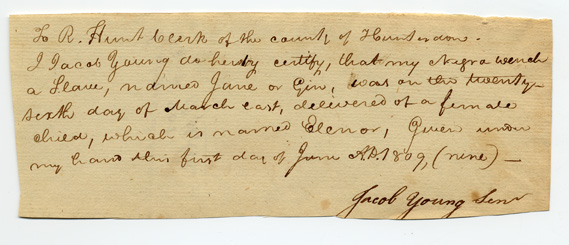 To R. Hunt Clerk of the county of Hunterdon.
I Jacob Young do hereby certify, that my Negro wench
a Slave, named June or Gin, was on the twenty-
sixth day of March last, delivered of a female
child, which is named Elenor, Given under
my hand this first day of June A.D. 1809, (nine) —
Jacob Young Senr